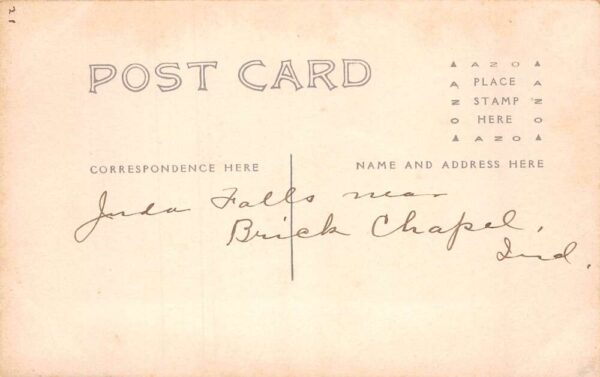 21
POST CARD
AZO
PLACE
STAMP
HERE
AZO
AZO
AZO
CORRESPONDENCE HERE
NAME AND ADDRESS HERE
Falls near
Brick Chapel,
Ind.